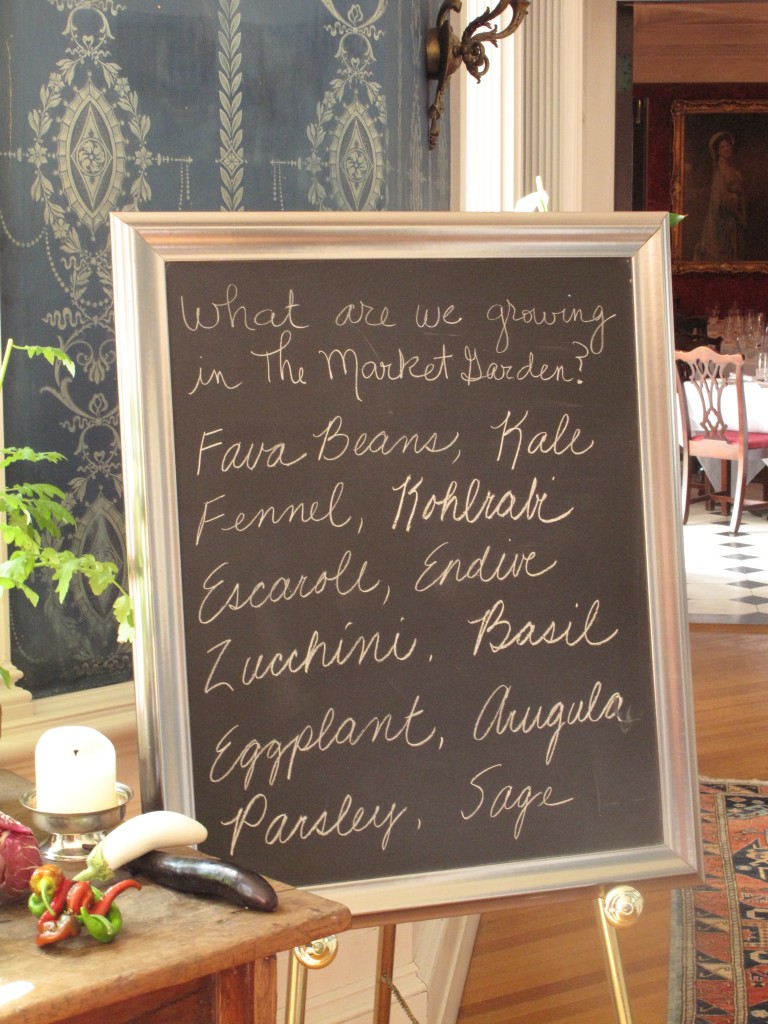 What are we growing
in The Market Garden?
Fava Beans, Kale
Fennel, Kohlrabi
Escarole, Endive
Zucchini, Basil
Eggplant, Arugula
Parsley, Sage